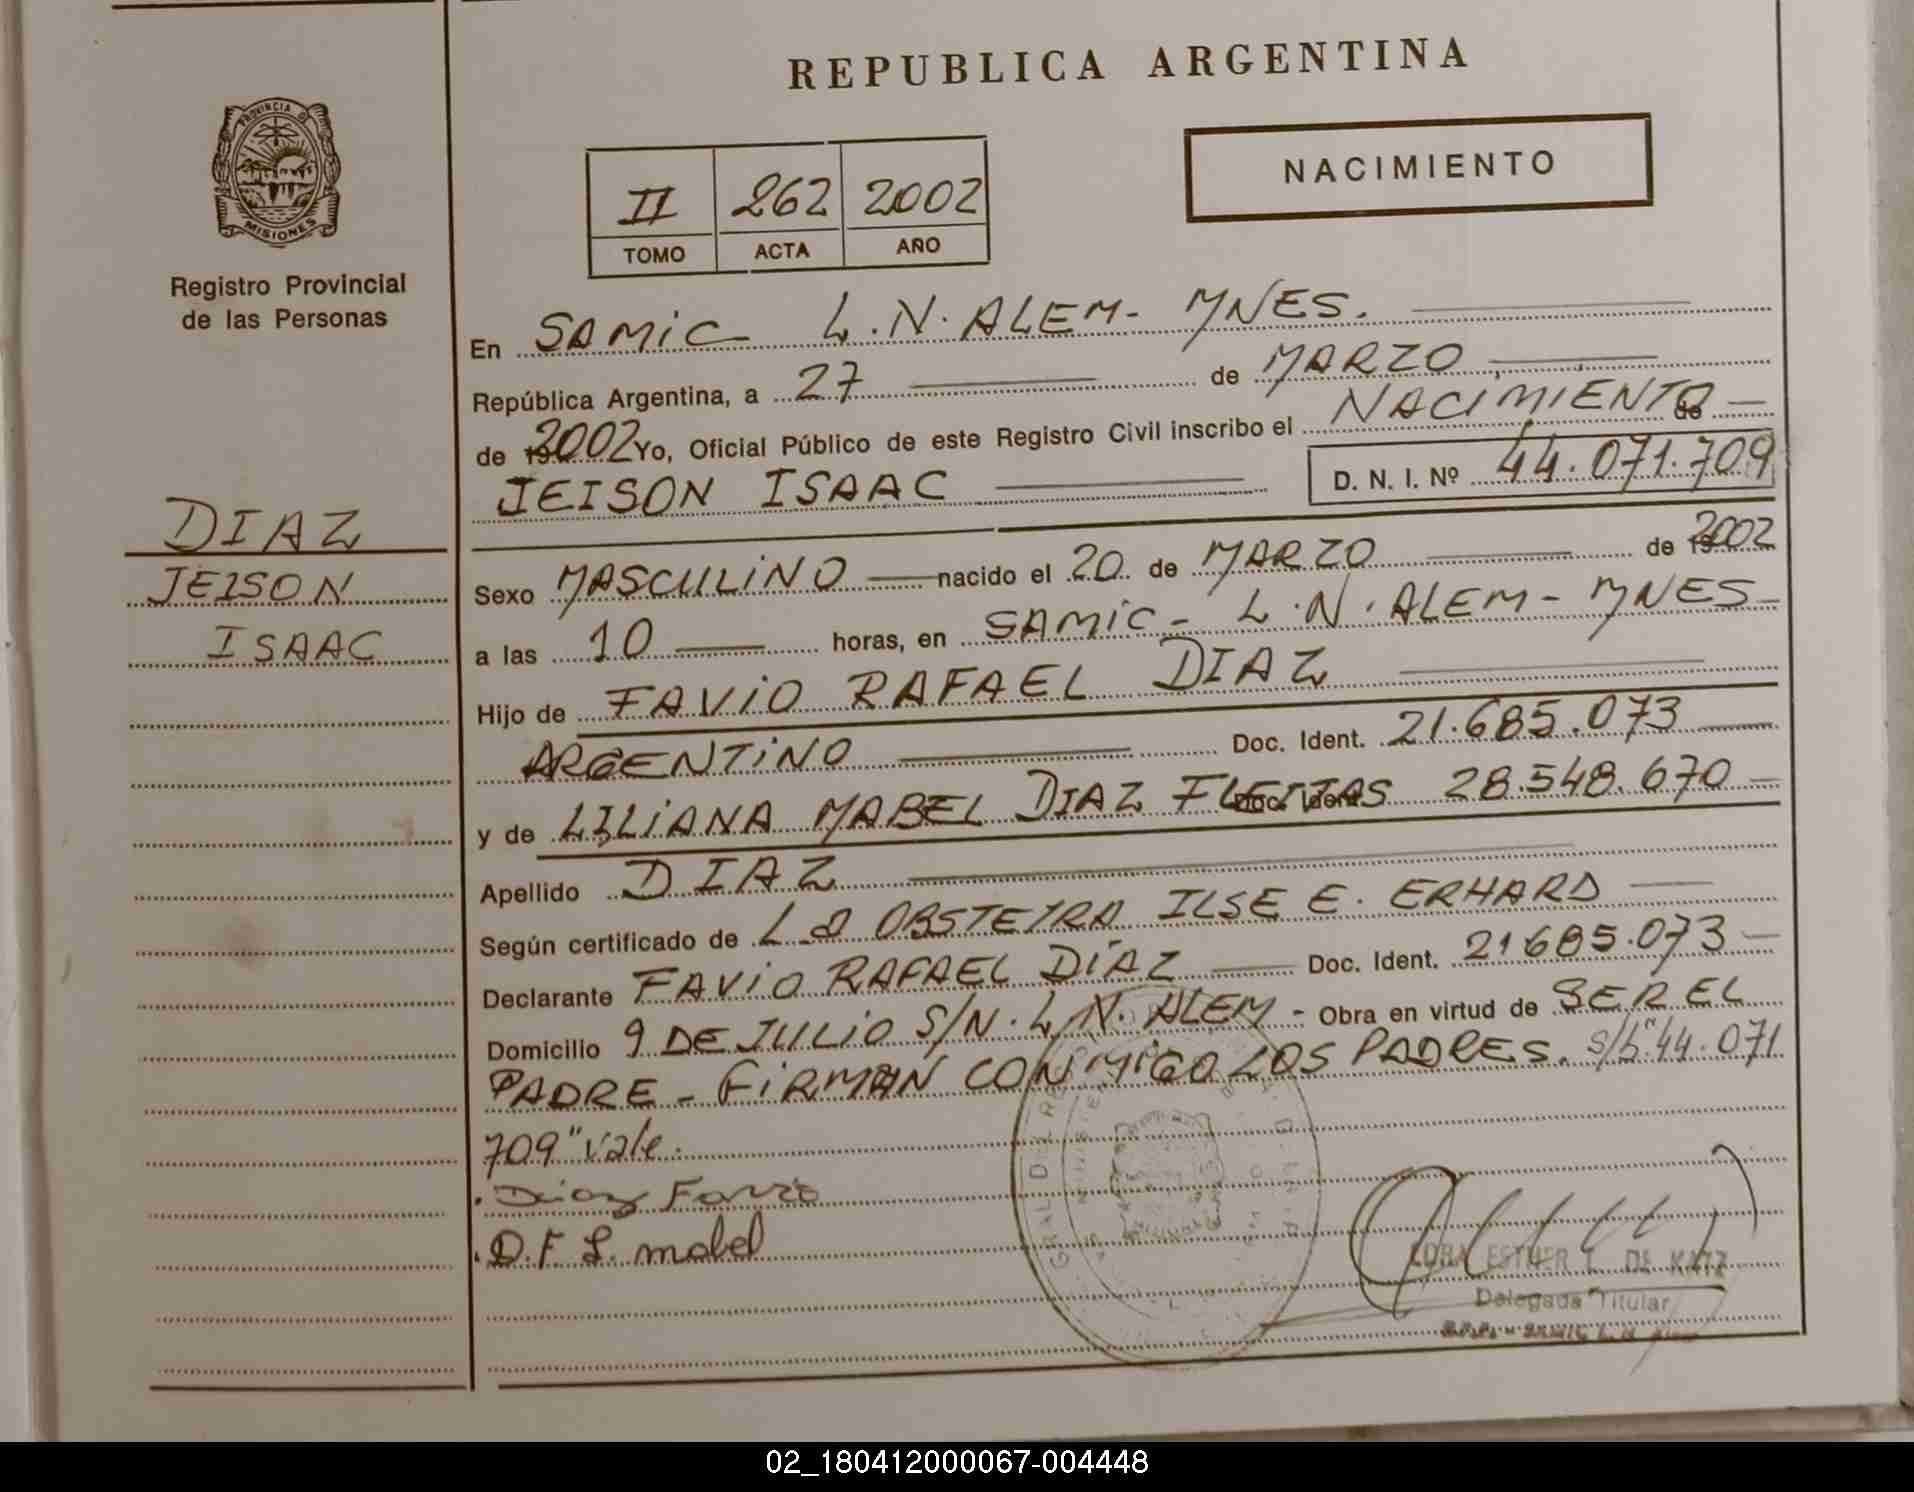 REPUBLICA ARGENTINA
PROVINCIA DE
MISIONES
Registro Provincial
de las Personas
II 262 2002
TOMO ACTA AÑO
NACIMIENTO
En SAMIC L.N. ALEM - MNES.
República Argentina, a 27 de MARZO
de 2002 Yo, Oficial Público de este Registro Civil inscribo el NACIMIENTO de
JEISON ISAAC D. N. I. Nº 44.071.709
DIAZ
JEISON
ISAAC
Sexo MASCULINO nacido el 20 de MARZO de 2002
a las 10 horas, en SAMIC - L.N. ALEM - MNES
Hijo de FAVIO RAFAEL DIAZ
ARGENTINO Doc. Ident. 21.685.073
y de LILIANA MABEL DIAZ FLEITAS Doc. Ident. 28.548.670
Apellido DIAZ
Según certificado de La OBSTETRA ILSE E. ERHARD
Declarante FAVIO RAFAEL DIAZ Doc. Ident. 21685.073
Domicilio 9 DE JULIO S/N. L.N. ALEM - Obra en virtud de SER EL
PADRE - FIRMAN CONMIGO LOS PADRES. S/b "44.071
709" Vale.
Diaz Favio
D.F L. mabel
ESTHER L. DE KATZ
Delegada Titular
02_180412000067-004448